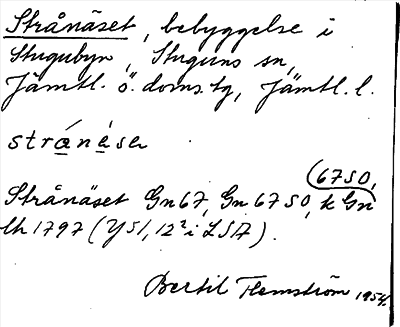 Strånäset, bebyggelse i
Stugubyn, Stuguns sn,
Jämtl. ö. doms. tg, Jämtl. l.
strånèsa
(6750,
Strånäset Gn67, Gn 6750, k Gn
lh 1797 (Y51, 12² i LSA).
Bertil Flemström 1954.